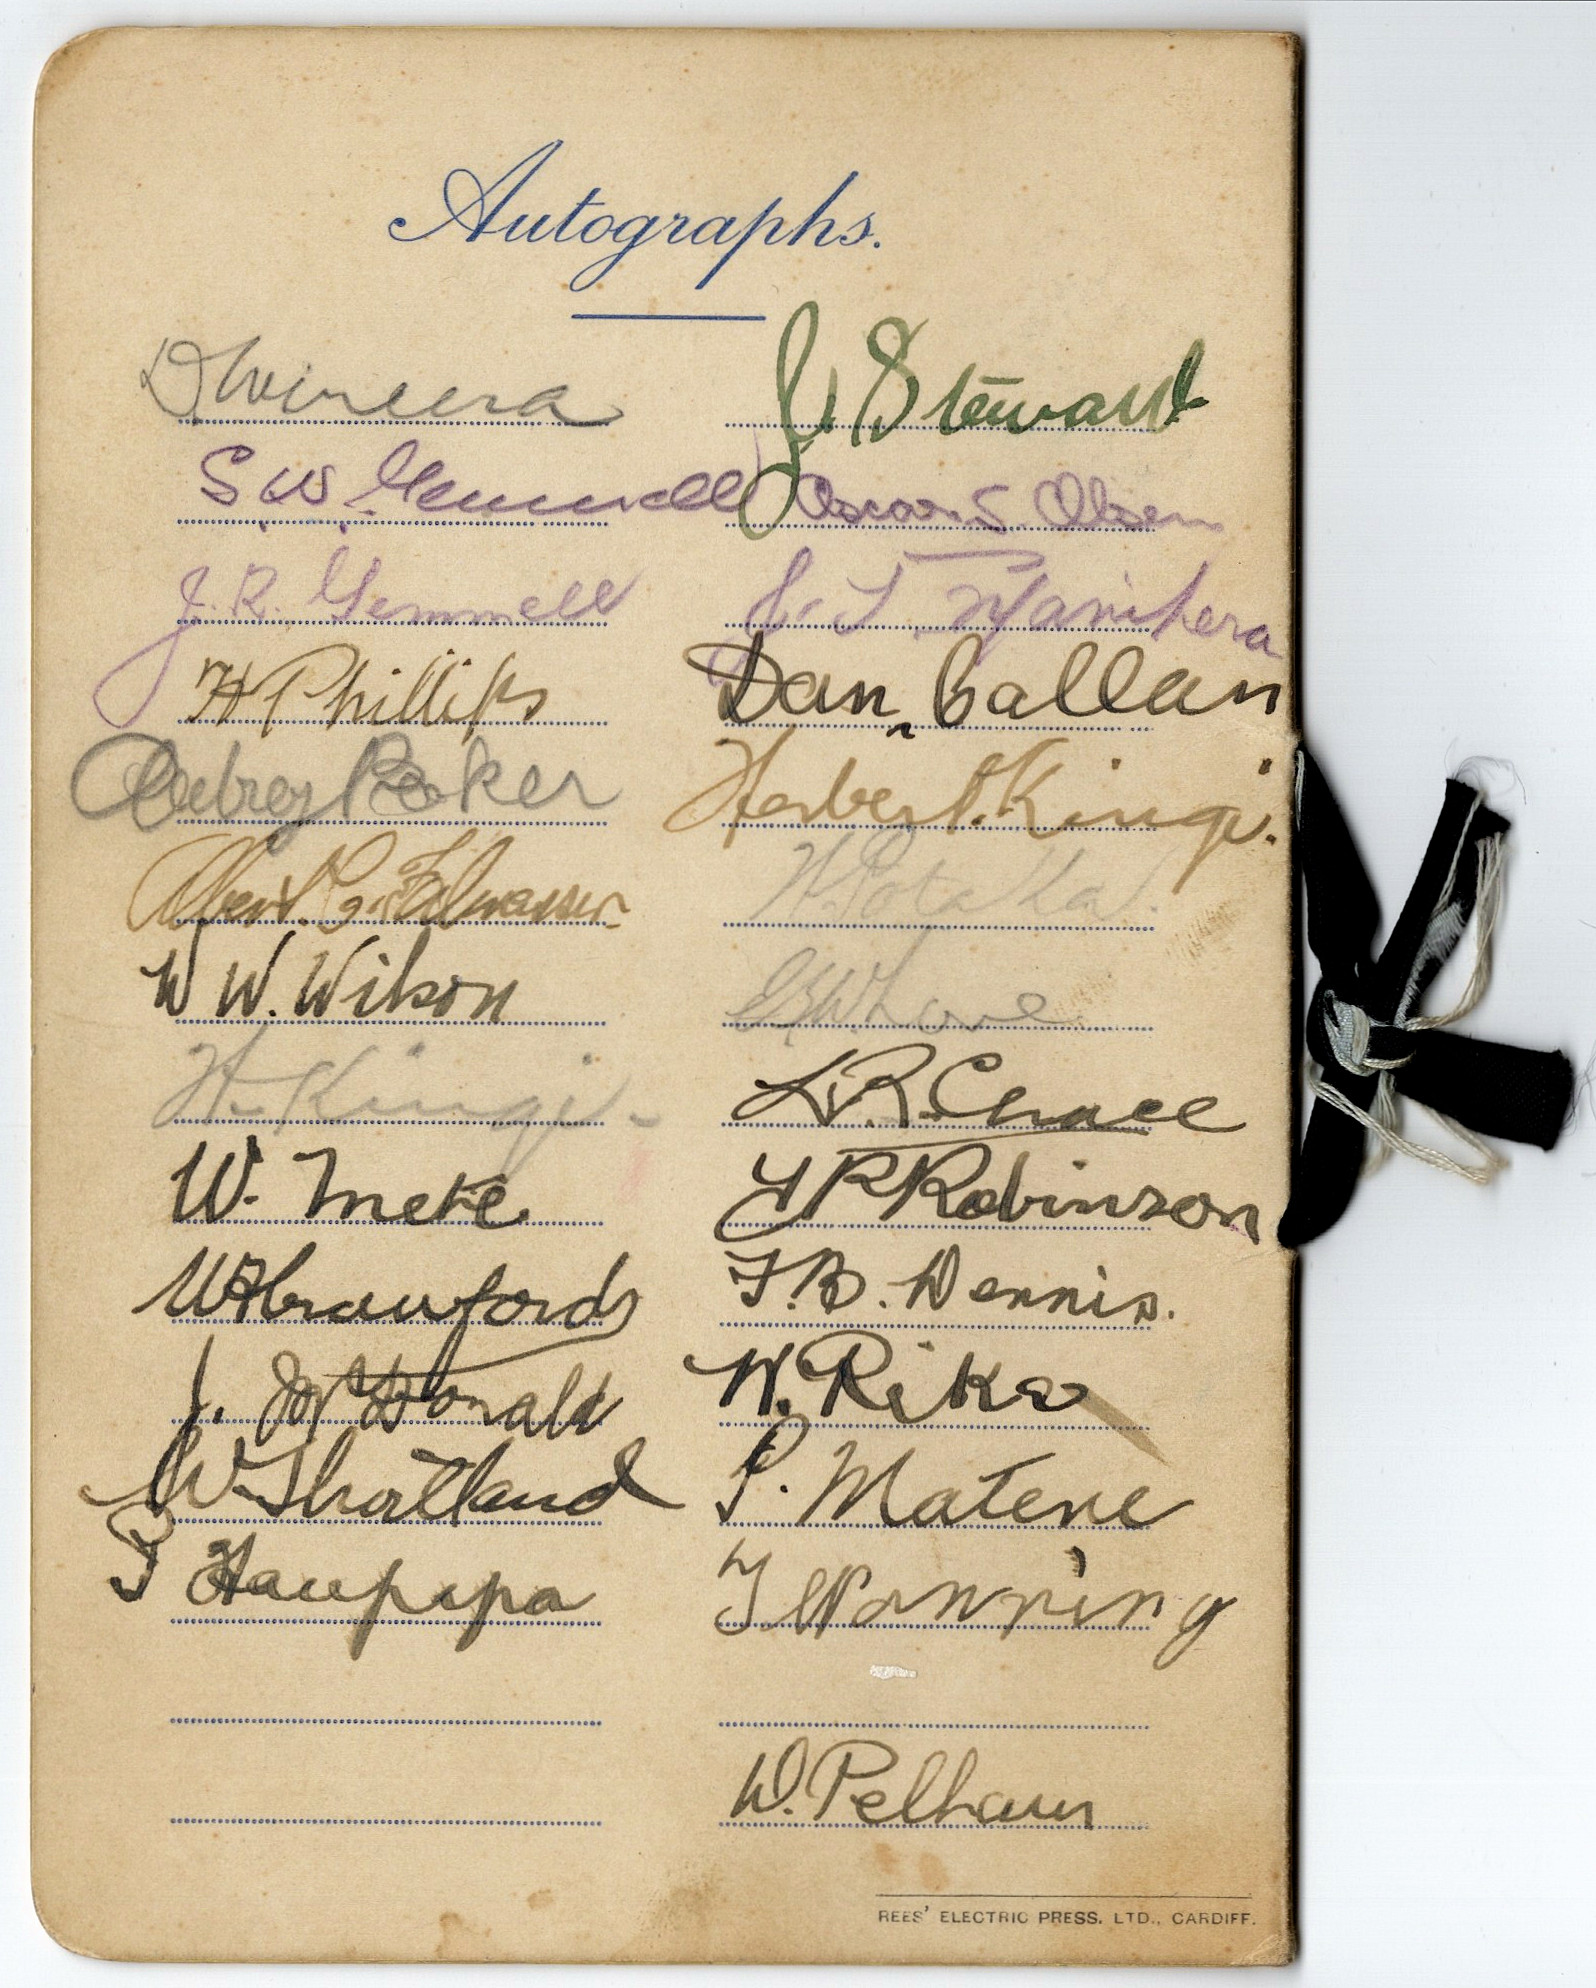 Autographs.
D Wineera
J. Stewart
S. W. Gemmell
Oscar S. Olsen
J. R. Gemmell
J. T.
H Phillips
Dan Callan
Aubrey Parker
Herbert Kingi.
Albert C. Falwasser
H Potaka.
W W. Wilson
G W Love
H. Kingi.
L. R. Chace
W. Mete
Robinson
W H Crawford
F. B. Dennis.
J. McDonald
W. Rika
W Shortland
P. Matene
P Haupapa
T Manning
W. Pelham
REES' ELECTRIC PRESS. LTD., CARDIFF.